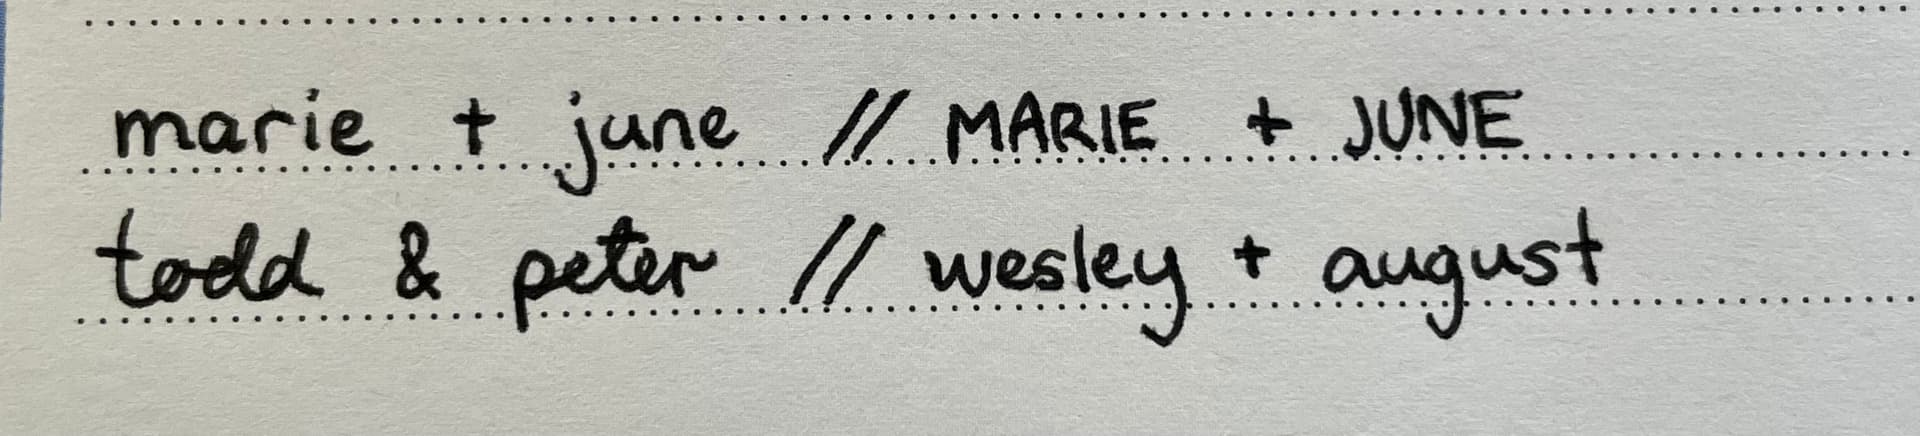 marie + june // MARIE + JUNE
todd & peter // wesley + august